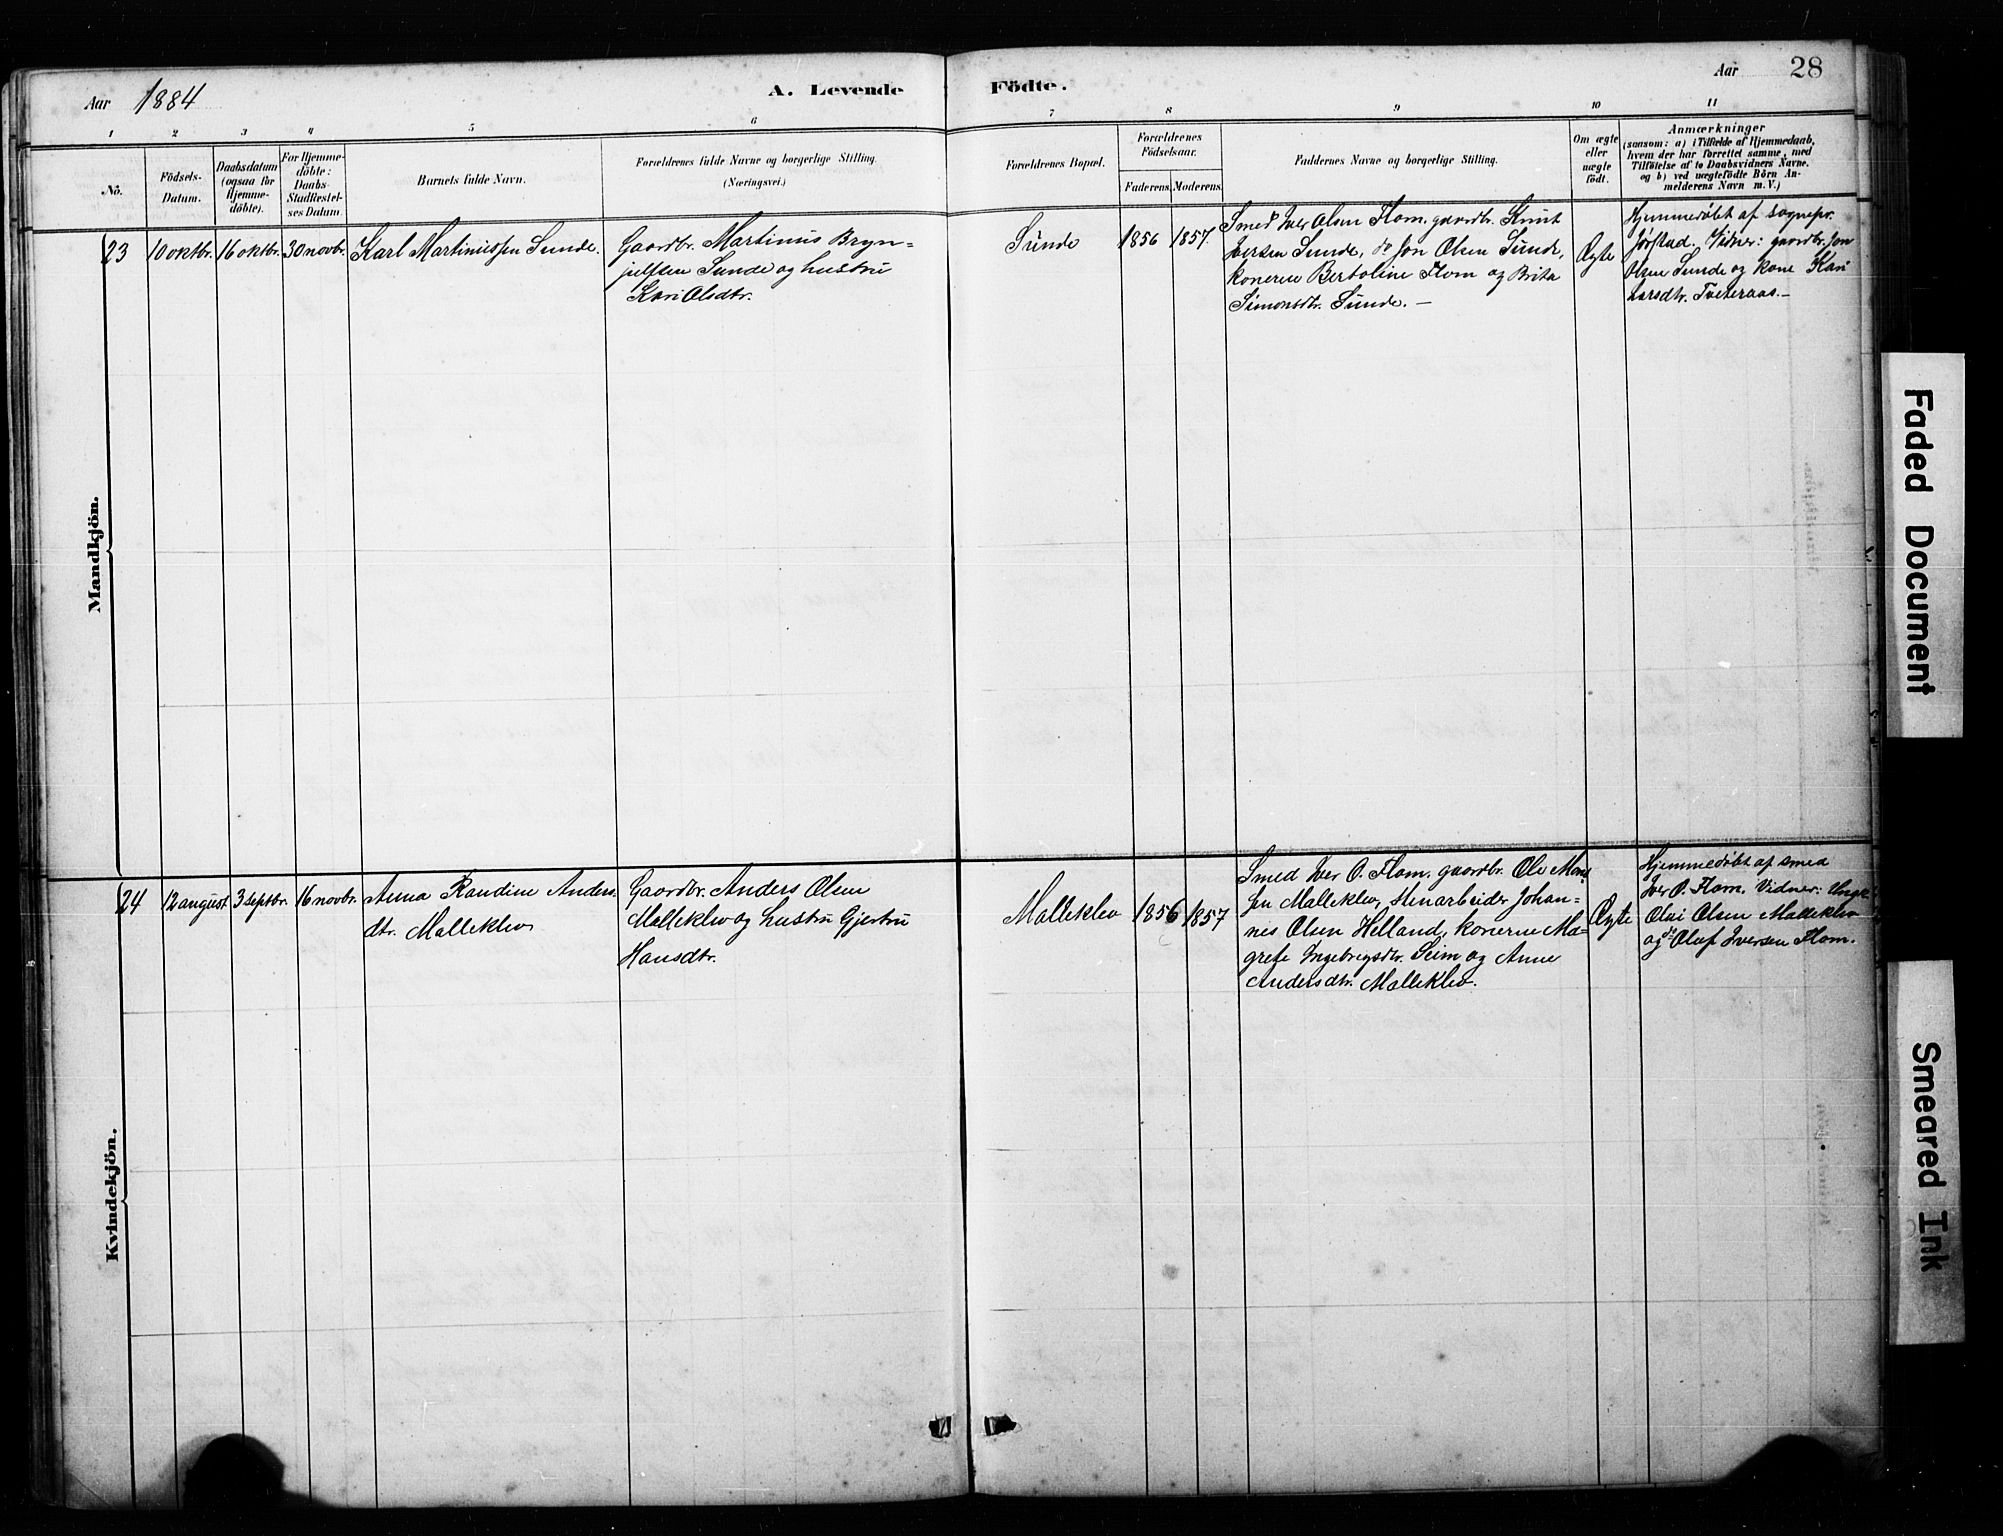 Aar 1884
A. Levende
Födte.
Aar
28
1
2
3
4
5
6
7
8
9
10
11
No.
Födsels-
Datum.
Daabsdatum
(ogsaa for
Hjemme-
döbte).
For Hjemme-
döbte:
Daabs-
Stadfæstel-
ses Datum.
Barnets fulde Navn.
Forældrenes fulde Navne og borgerlige Stilling.
(Næringsvei.)
Forældrenes Bopæl.
Forældrenes
Födselsaar.
Faderens.
Moderens.
Faddernes Navne og borgerlige Stilling.
Om ægte
eller
uægte
födt.
Anmærkninger
(saasom: a) i Tilfælde af Hjemmedaab,
hvem der har forrettet samme, med
Tilföielse af to Daabsvidners Navne.
og b) ved uægtefödte Börn An-
melderens Navn m. V.)
Mandkjön.
23
10 oktbr.
16 oktbr.
30 novbr.
Karl Martinussen Sunde.
Gaardbr. Martinus Bryn-
julfsen Sunde og hustru
Kari Olsdtr.
Sunde
1856
1857.
Smed Iver Olsen Flom, gaardbr. Knut
Iversen Sunde, do Jon Olsen Sunde,
konerne Bertoline Flom og Brita
Simonsdtr. Sunde. –
Ægte
Hjemmedöbt af sognepr.
Jörstad. Vidner: gaardbr. Jon
Olsen Sunde og kone Kari
Larsdtr. Tveteraas. –
Kvindekjön.
24
12 august
3 septbr.
16 novbr.
Anna Randine Anders-
dtr. Malleklev
Gaardbr. Anders Olsen
Malleklev og hustru Gjertru
Hansdtr.
Malleklev
1856
1857
Smed Iver O. Flom, gaardbr. Ole Mons-
sen Malleklev, Stenarbeider Johan-
nes Olsen Helland, konerne Ma-
grete Ingebrigsdtr. Seim og Anne
Andersdtr. Malleklev.
Ægte
Hjemmedöbt af smed
Iver O. Flom. Vidner: Ungk.
Olai Olsen Malleklev
og do Oluf Iversen Flom.
Faded Document
Smeared Ink